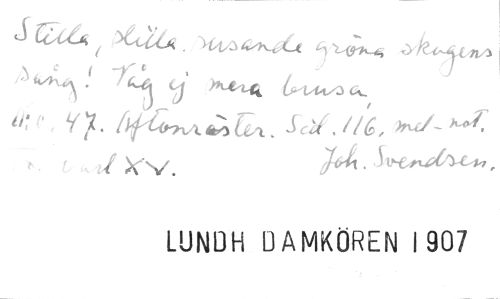 Stilla, stilla susande gröna skogens
sång! Våg ej mera brusa,
N:o. 47. Aftonröster. Sid. 116. mel-not.
Carl XV. Joh. Svendsen.
LUNDH DAMKÖREN 1907